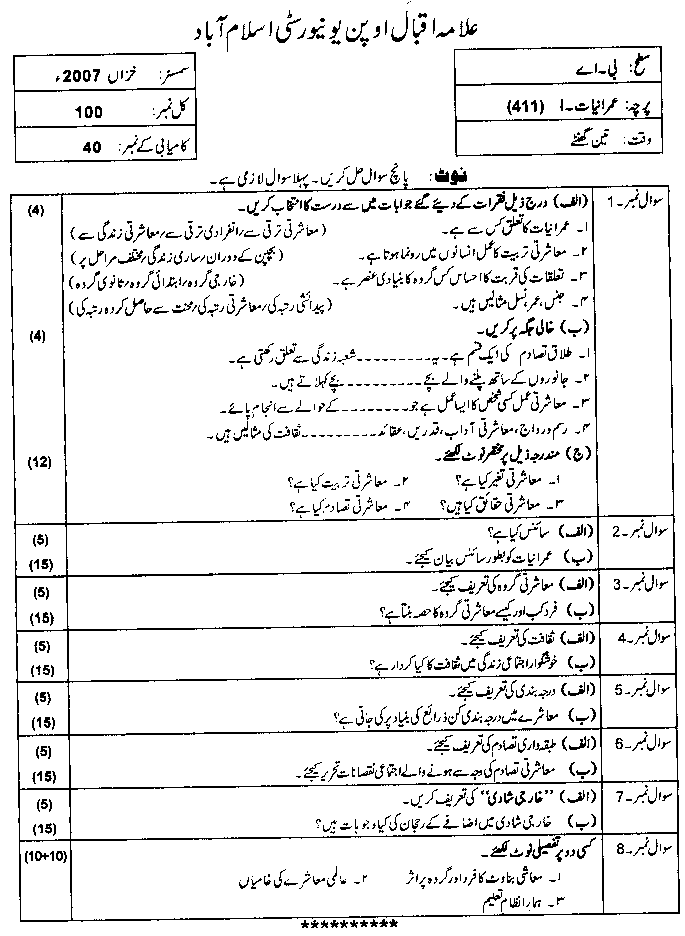 علامہ اقبال اوپن یونیورسٹی اسلام آباد
سطح: بی۔اے
پرچہ: عمرانیات۔I (411)
وقت: تین گھنٹے
سمسٹر: خزاں 2007ء
کل نمبر: 100
کامیابی کے نمبر: 40
نوٹ: پانچ سوال حل کریں۔ پہلا سوال لازمی ہے۔
سوال نمبر۔1 (الف) درج ذیل فقرات کے دیئے گئے جوابات میں سے درست کا انتخاب کریں۔ (4)
۱۔ عمرانیات کا تعلق کس سے ہے۔ (معاشرتی ترقی سے/انفرادی ترقی سے/معاشرتی زندگی سے)
۲۔ معاشرتی تربیت کا عمل انسانوں میں رونما ہوتا ہے۔ (بچپن کے دوران/ساری زندگی/مختلف مراحل پر)
۳۔ تعلقات کی قربت کا احساس کس گروہ کا بنیادی عنصر ہے۔ (خارجی گروہ/ابتدائی گروہ/ثانوی گروہ)
۴۔ جنس، عمر، نسل مثالیں ہیں۔ (پیدائشی رتبہ کی/معاشرتی رتبہ کی/محنت سے حاصل کردہ رتبہ کی)
(ب) خالی جگہ پر کریں۔ (4)
۱۔ طلاق تصادم کی ایک قسم ہے۔ یہ ---------- شعبہ زندگی سے تعلق رکھتی ہے۔
۲۔ جانوروں کے ساتھ پلنے والے بچے ---------- بچے کہلاتے ہیں۔
۳۔ معاشرتی عمل کسی شخص کا ایسا عمل ہے جو ---------- کے حوالے سے انجام پائے۔
۴۔ رسم و رواج، معاشرتی آداب، قدریں، عقائد ---------- ثقافت کی مثالیں ہیں۔
(ج) مندرجہ ذیل پر مختصر نوٹ لکھئے۔ (12)
۱۔ معاشرتی تغیر کیا ہے؟ ۲۔ معاشرتی تربیت کیا ہے؟
۳۔ معاشرتی حقائق کیا ہیں؟ ۴۔ معاشرتی تصادم کیا ہے؟
سوال نمبر۔2 (الف) سائنس کیا ہے؟ (5)
(ب) عمرانیات کو بطور سائنس بیان کیجئے۔ (15)
سوال نمبر۔3 (الف) معاشرتی گروہ کی تعریف کیجئے۔ (5)
(ب) فرد کب اور کیسے معاشرتی گروہ کا حصہ بنتا ہے؟ (15)
سوال نمبر۔4 (الف) ثقافت کی تعریف کیجئے۔ (5)
(ب) خوشگوار اجتماعی زندگی میں ثقافت کا کیا کردار ہے؟ (15)
سوال نمبر۔5 (الف) درجہ بندی کی تعریف کیجئے۔ (5)
(ب) معاشرے میں درجہ بندی کن ذرائع کی بنیاد پر کی جاتی ہے؟ (15)
سوال نمبر۔6 (الف) طبقہ داری تصادم کی تعریف کیجئے۔ (5)
(ب) معاشرتی تصادم کی وجہ سے ہونے والے اجتماعی نقصانات تحریر کیجئے۔ (15)
سوال نمبر۔7 (الف) "خارجی شادی" کی تعریف کریں۔ (5)
(ب) خارجی شادی میں اضافے کے رجحان کی کیا وجوہات ہیں؟ (15)
سوال نمبر۔8 کسی دو پر تفصیلی نوٹ لکھئے۔ (10+10)
۱۔ معاشی بناوٹ کا فرد اور گروہ پر اثر ۲۔ عالمی معاشرے کی خامیاں
۳۔ ہمارا نظام تعلیم
**********